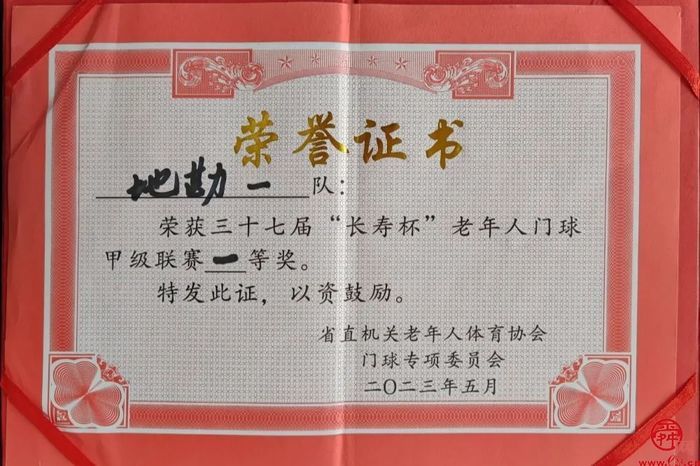 荣誉证书
地勘一队：
荣获三十七届“长寿杯”老年人门球
甲级联赛一等奖。
特发此证，以资鼓励。
省直机关老年人体育协会
门球专项委员会
二〇二三年五月